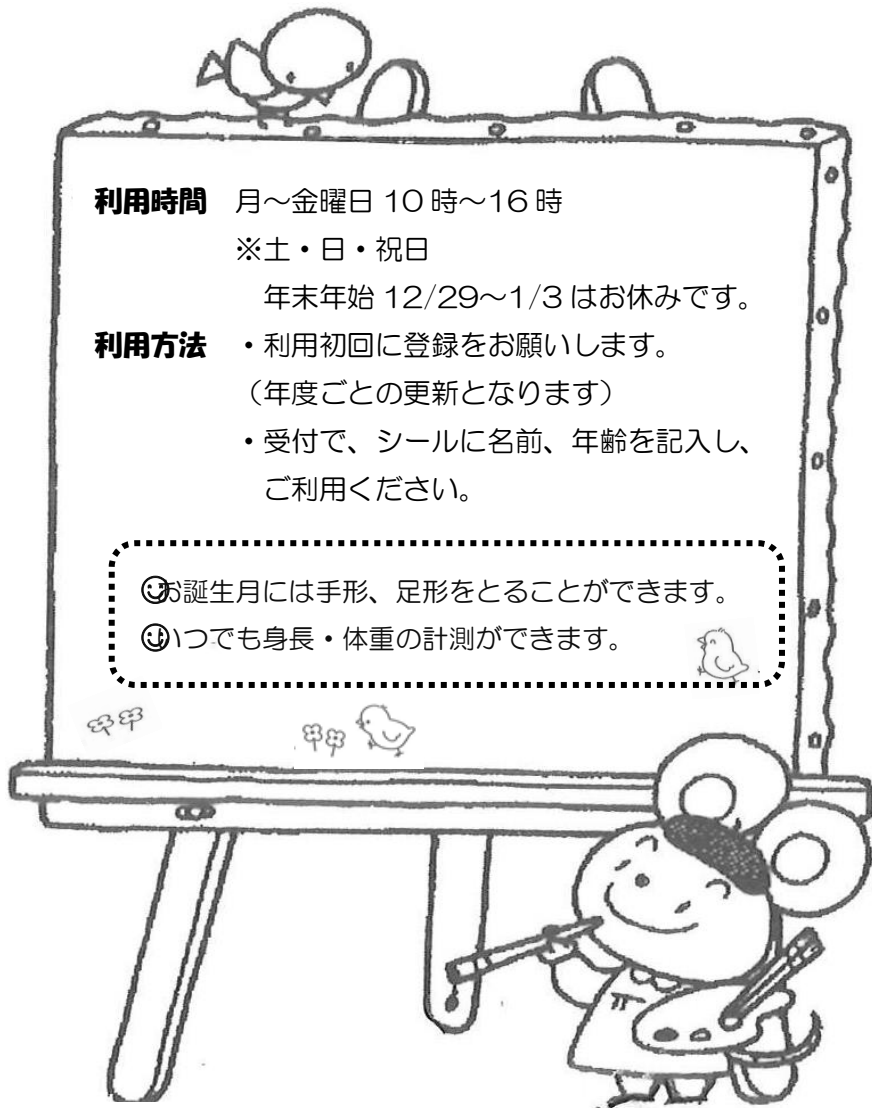 利用時間 月～金曜日 10時～16時
※土・日・祝日
年末年始 12/29～1/3はお休みです。
利用方法 ・利用初回に登録をお願いします。
（年度ごとの更新となります）
・受付で、シールに名前、年齢を記入し、
ご利用ください。
☺お誕生月には手形、足形をとることができます。
☺いつでも身長・体重の計測ができます。